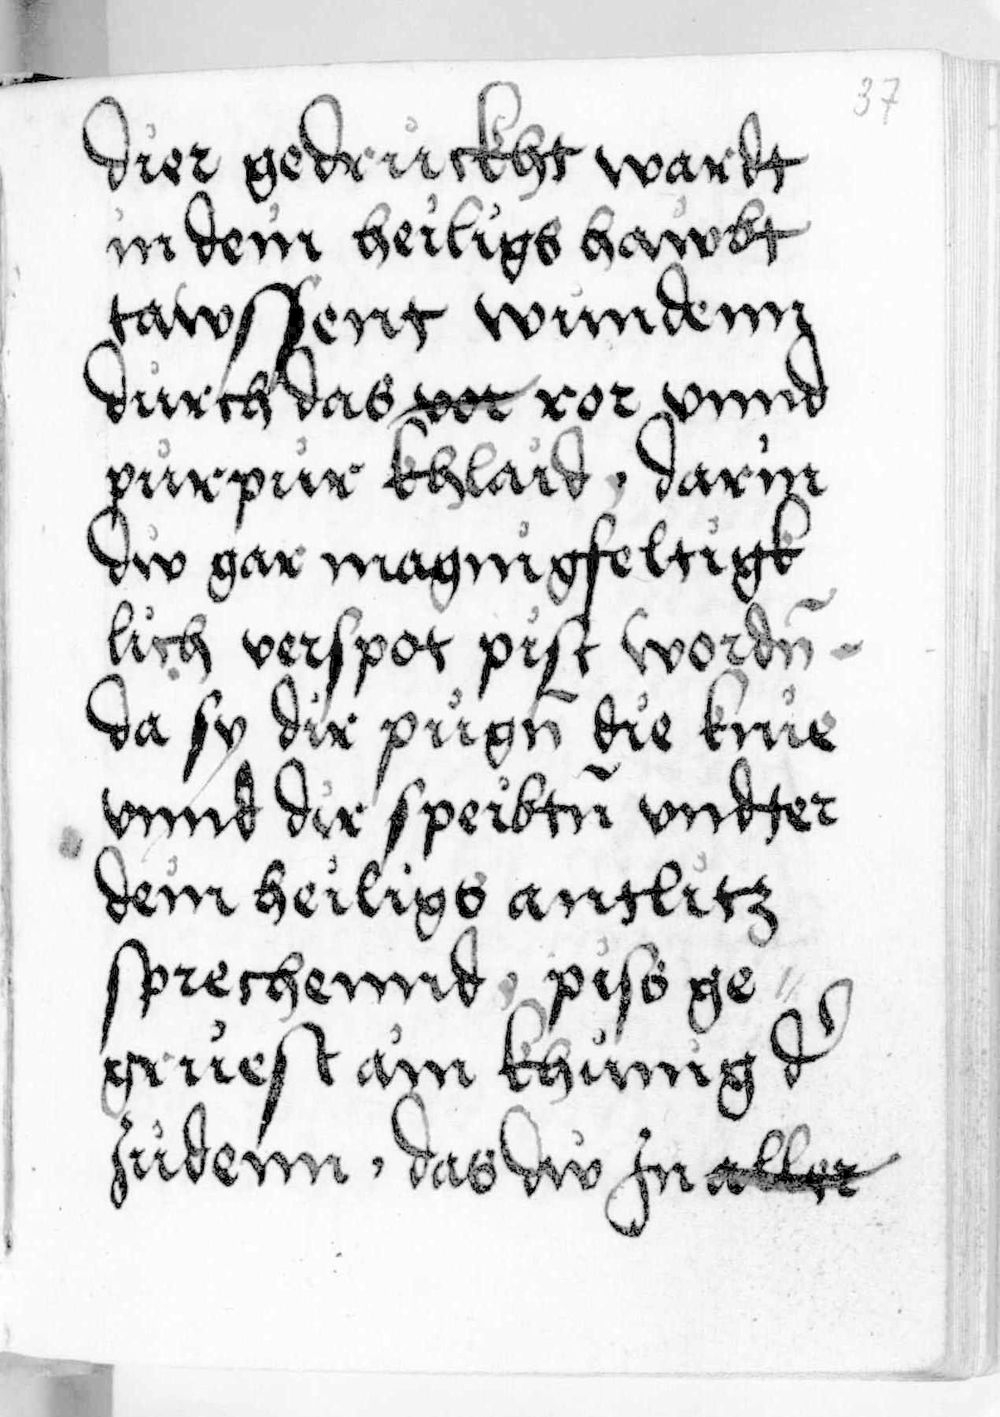 37
dier gedruckht wardt
in dein heiligs hawbt
tawssent wundenn
durch das vor ror vnnd
purpur khlaid, darin
dw gar magnigfeltigk
lich verspot pist wordn̄
da sy dir pugn̄ die knie
vnnd dir speibtn̄ vndter
dein heiligs antlitz
sprechennd, piss ge
gruest ain khunig d
Judenn, das dw Jn aller